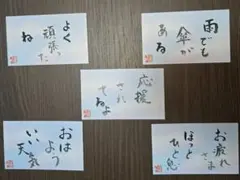 よく
頑張った
ね
雨でも
傘が
ある
応援
され
てるよ
おはよう
いい
天気
お疲れ
さま
ほっと
ひと息